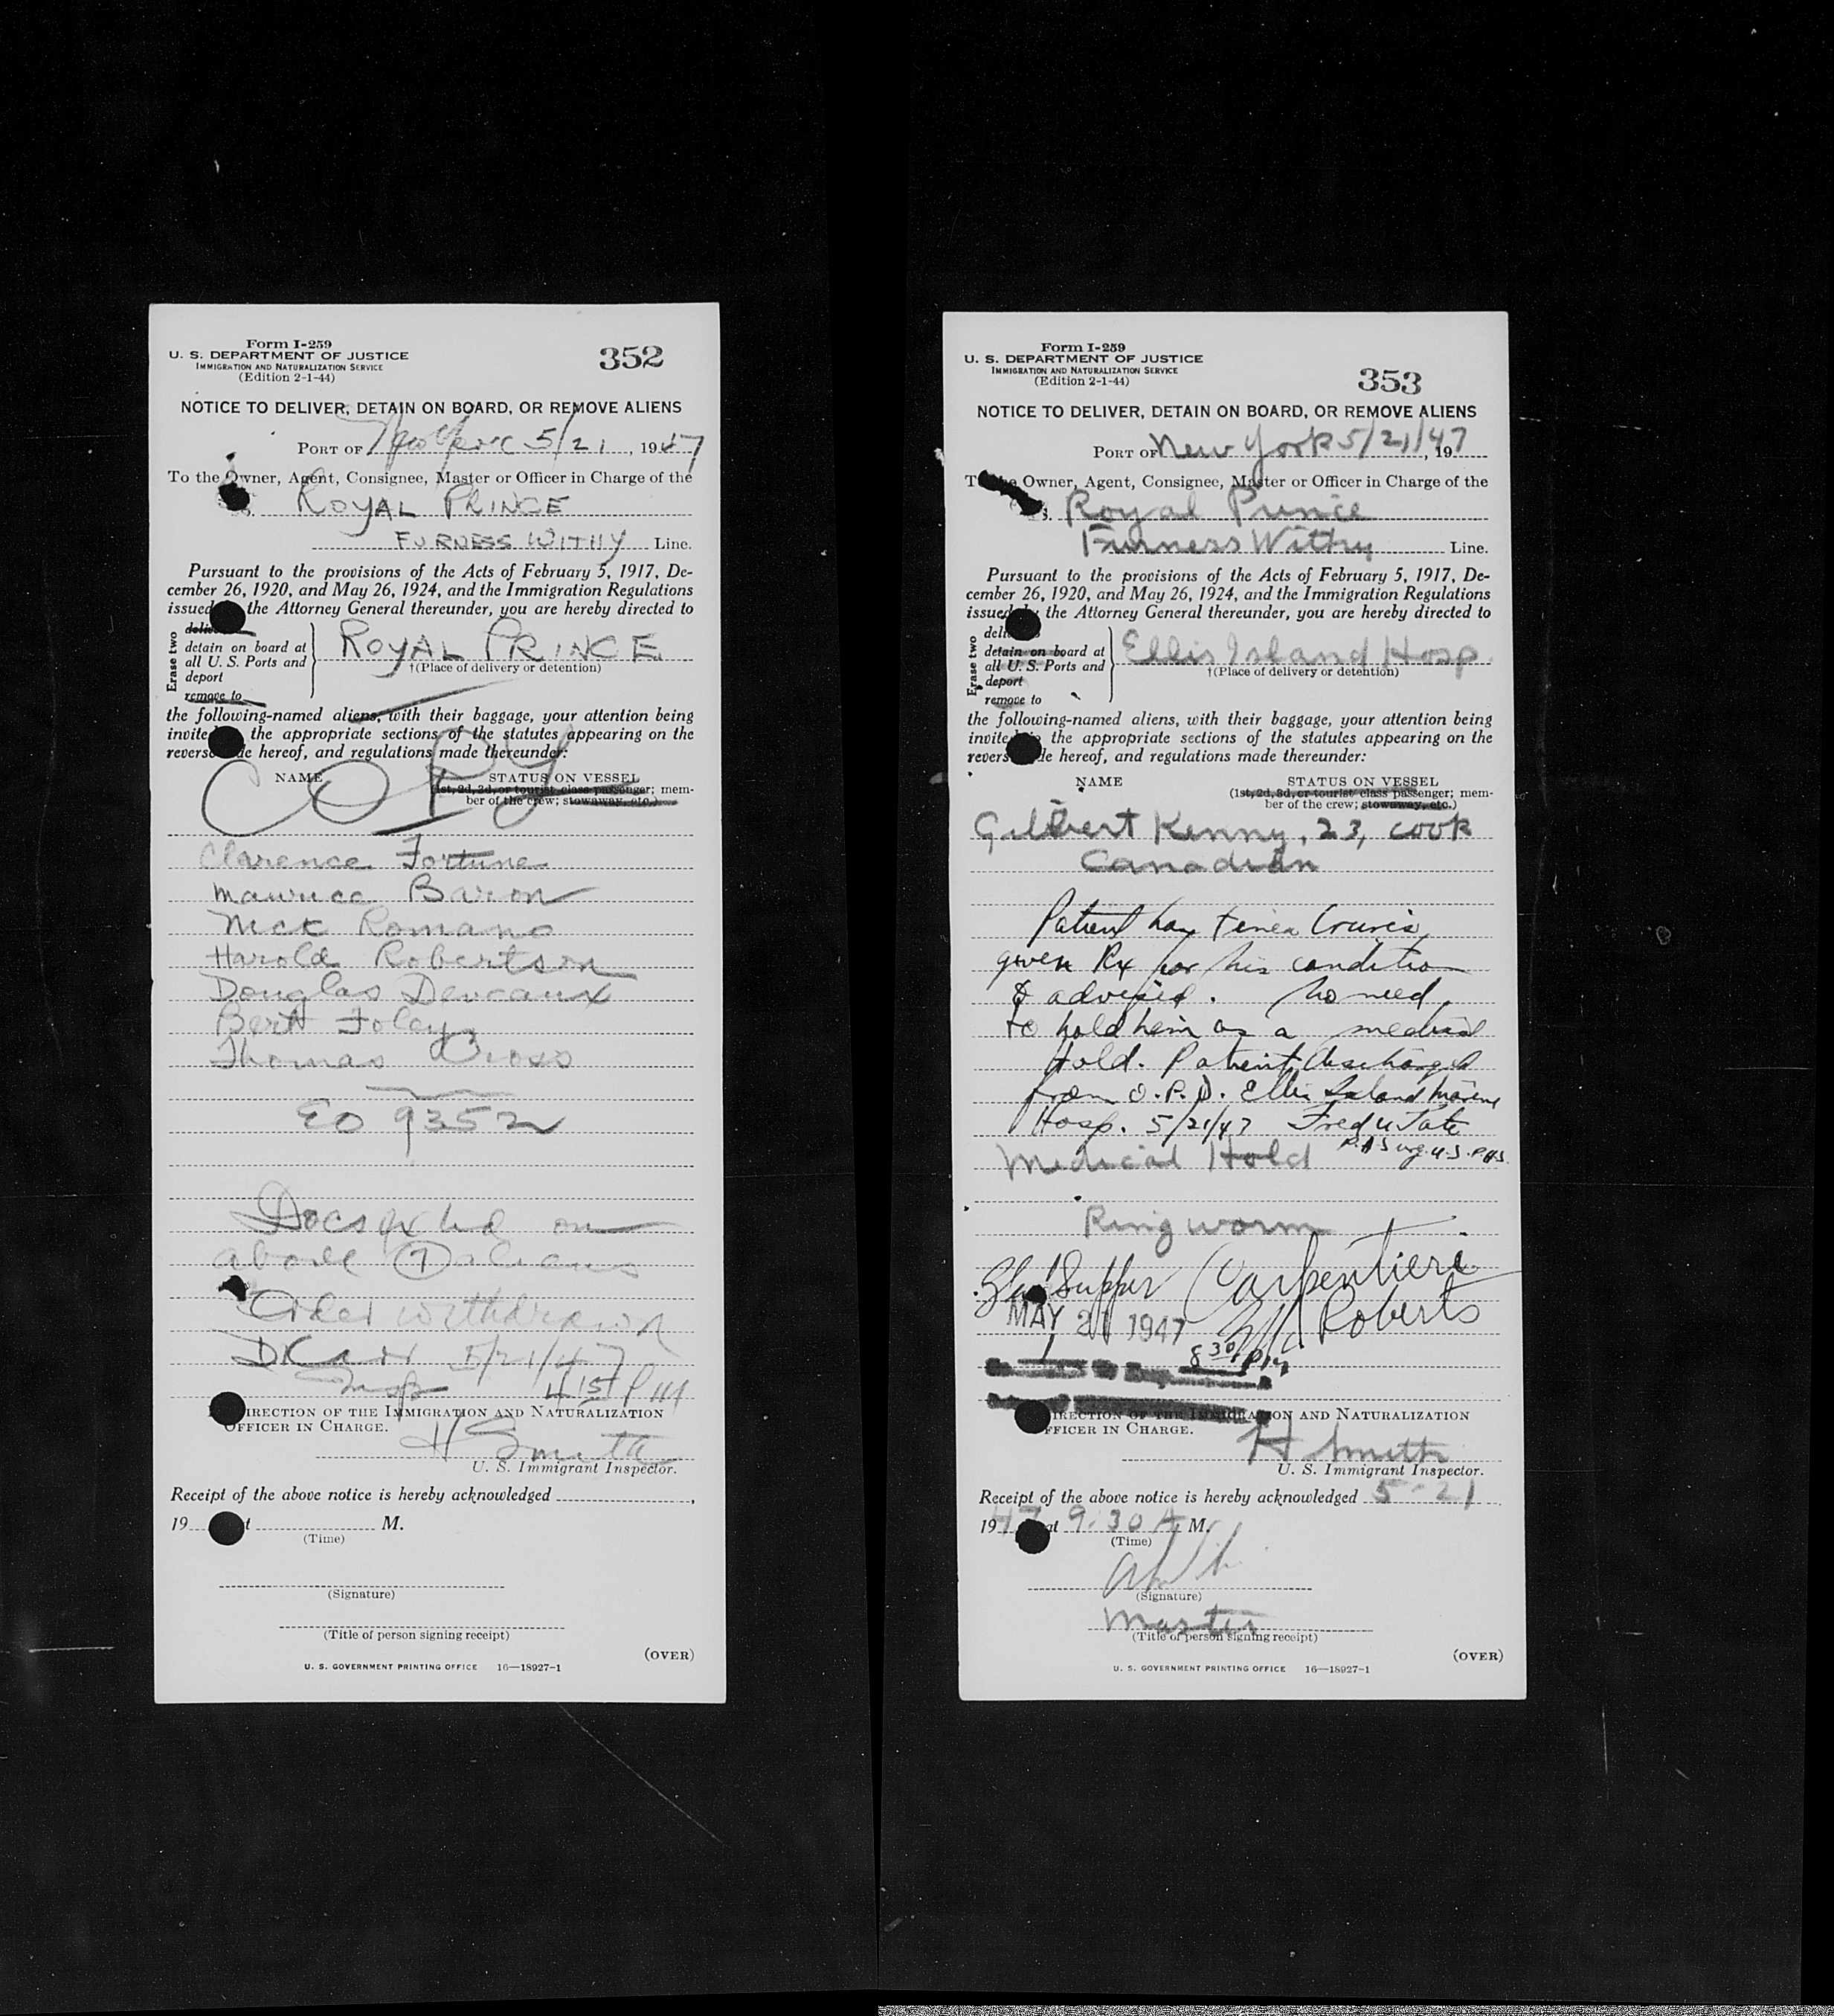 Form I-259
U. S. DEPARTMENT OF JUSTICE
IMMIGRATION AND NATURALIZATION SERVICE
(Edition 2-1-44)
352
NOTICE TO DELIVER, DETAIN ON BOARD, OR REMOVE ALIENS
PORT OF New York 5/21, 1947
To the Owner, Agent, Consignee, Master or Officer in Charge of the
S. ROYAL PRINCE
FURNESS WITHY Line.
Pursuant to the provisions of the Acts of February 5, 1917, De-
cember 26, 1920, and May 26, 1924, and the Immigration Regulations
issued the Attorney General thereunder, you are hereby directed to
Erase two
deliver
detain on board at
all U. S. Ports and
deport
remove to
ROYAL PRINCE
†(Place of delivery or detention)
the following-named aliens, with their baggage, your attention being
invite the appropriate sections of the statutes appearing on the
reverse hereof, and regulations made thereunder:
COPY
NAME STATUS ON VESSEL
(1st, 2d, 3d, or tourist class passenger; mem-
ber of the crew; stowaway, etc.)
Clarence Fortune
Maurice Baron
Nick Romano
Harold Robertson
Douglas Deveaux
Bert Foley
Thomas Cross
EO 9352
Docs on
above 7 aliens
Order withdrawn
5/21/47
Insp 4 15 PM
DIRECTION OF THE IMMIGRATION AND NATURALIZATION
OFFICER IN CHARGE.
H Smith
U. S. Immigrant Inspector.
Receipt of the above notice is hereby acknowledged
19 t M.
(Time)
(Signature)
(Title of person signing receipt)
(OVER)
U. S. GOVERNMENT PRINTING OFFICE 16—18927-1
Form I-259
U. S. DEPARTMENT OF JUSTICE
IMMIGRATION AND NATURALIZATION SERVICE
(Edition 2-1-44)
353
NOTICE TO DELIVER, DETAIN ON BOARD, OR REMOVE ALIENS
PORT OF New York 5/21/47, 19
To the Owner, Agent, Consignee, Master or Officer in Charge of the
S. Royal Prince
Furness Withy Line.
Pursuant to the provisions of the Acts of February 5, 1917, De-
cember 26, 1920, and May 26, 1924, and the Immigration Regulations
issued by the Attorney General thereunder, you are hereby directed to
Erase two
deliver
detain on board at
all U. S. Ports and
deport
remove to
Ellis Island Hosp.
†(Place of delivery or detention)
the following-named aliens, with their baggage, your attention being
invite the appropriate sections of the statutes appearing on the
reverse hereof, and regulations made thereunder:
NAME STATUS ON VESSEL
(1st, 2d, 3d, or tourist class passenger; mem-
ber of the crew; stowaway, etc.)
Gilbert Kenny, 23, cook
Canadian
Patient has tinea Cruris
given Rx for his condition
& advised. No need
to hold him as a medical
Hold. Patient discharged
from O.P.D. Ellis Island Marine
Hosp. 5/21/47 Fred Tate
P.A Surg. U.S. P.H.S.
Medical Hold
Ring worm
Supper Carpentiere
MAY 21 1947 Roberts
8 30 PM
DIRECTION OF THE IMMIGRATION AND NATURALIZATION
OFFICER IN CHARGE.
H Smith
U. S. Immigrant Inspector.
Receipt of the above notice is hereby acknowledged 5-21
1947 at 9.30 A M.
(Time)
(Signature)
Master
(Title of person signing receipt)
(OVER)
U. S. GOVERNMENT PRINTING OFFICE 16—18927-1